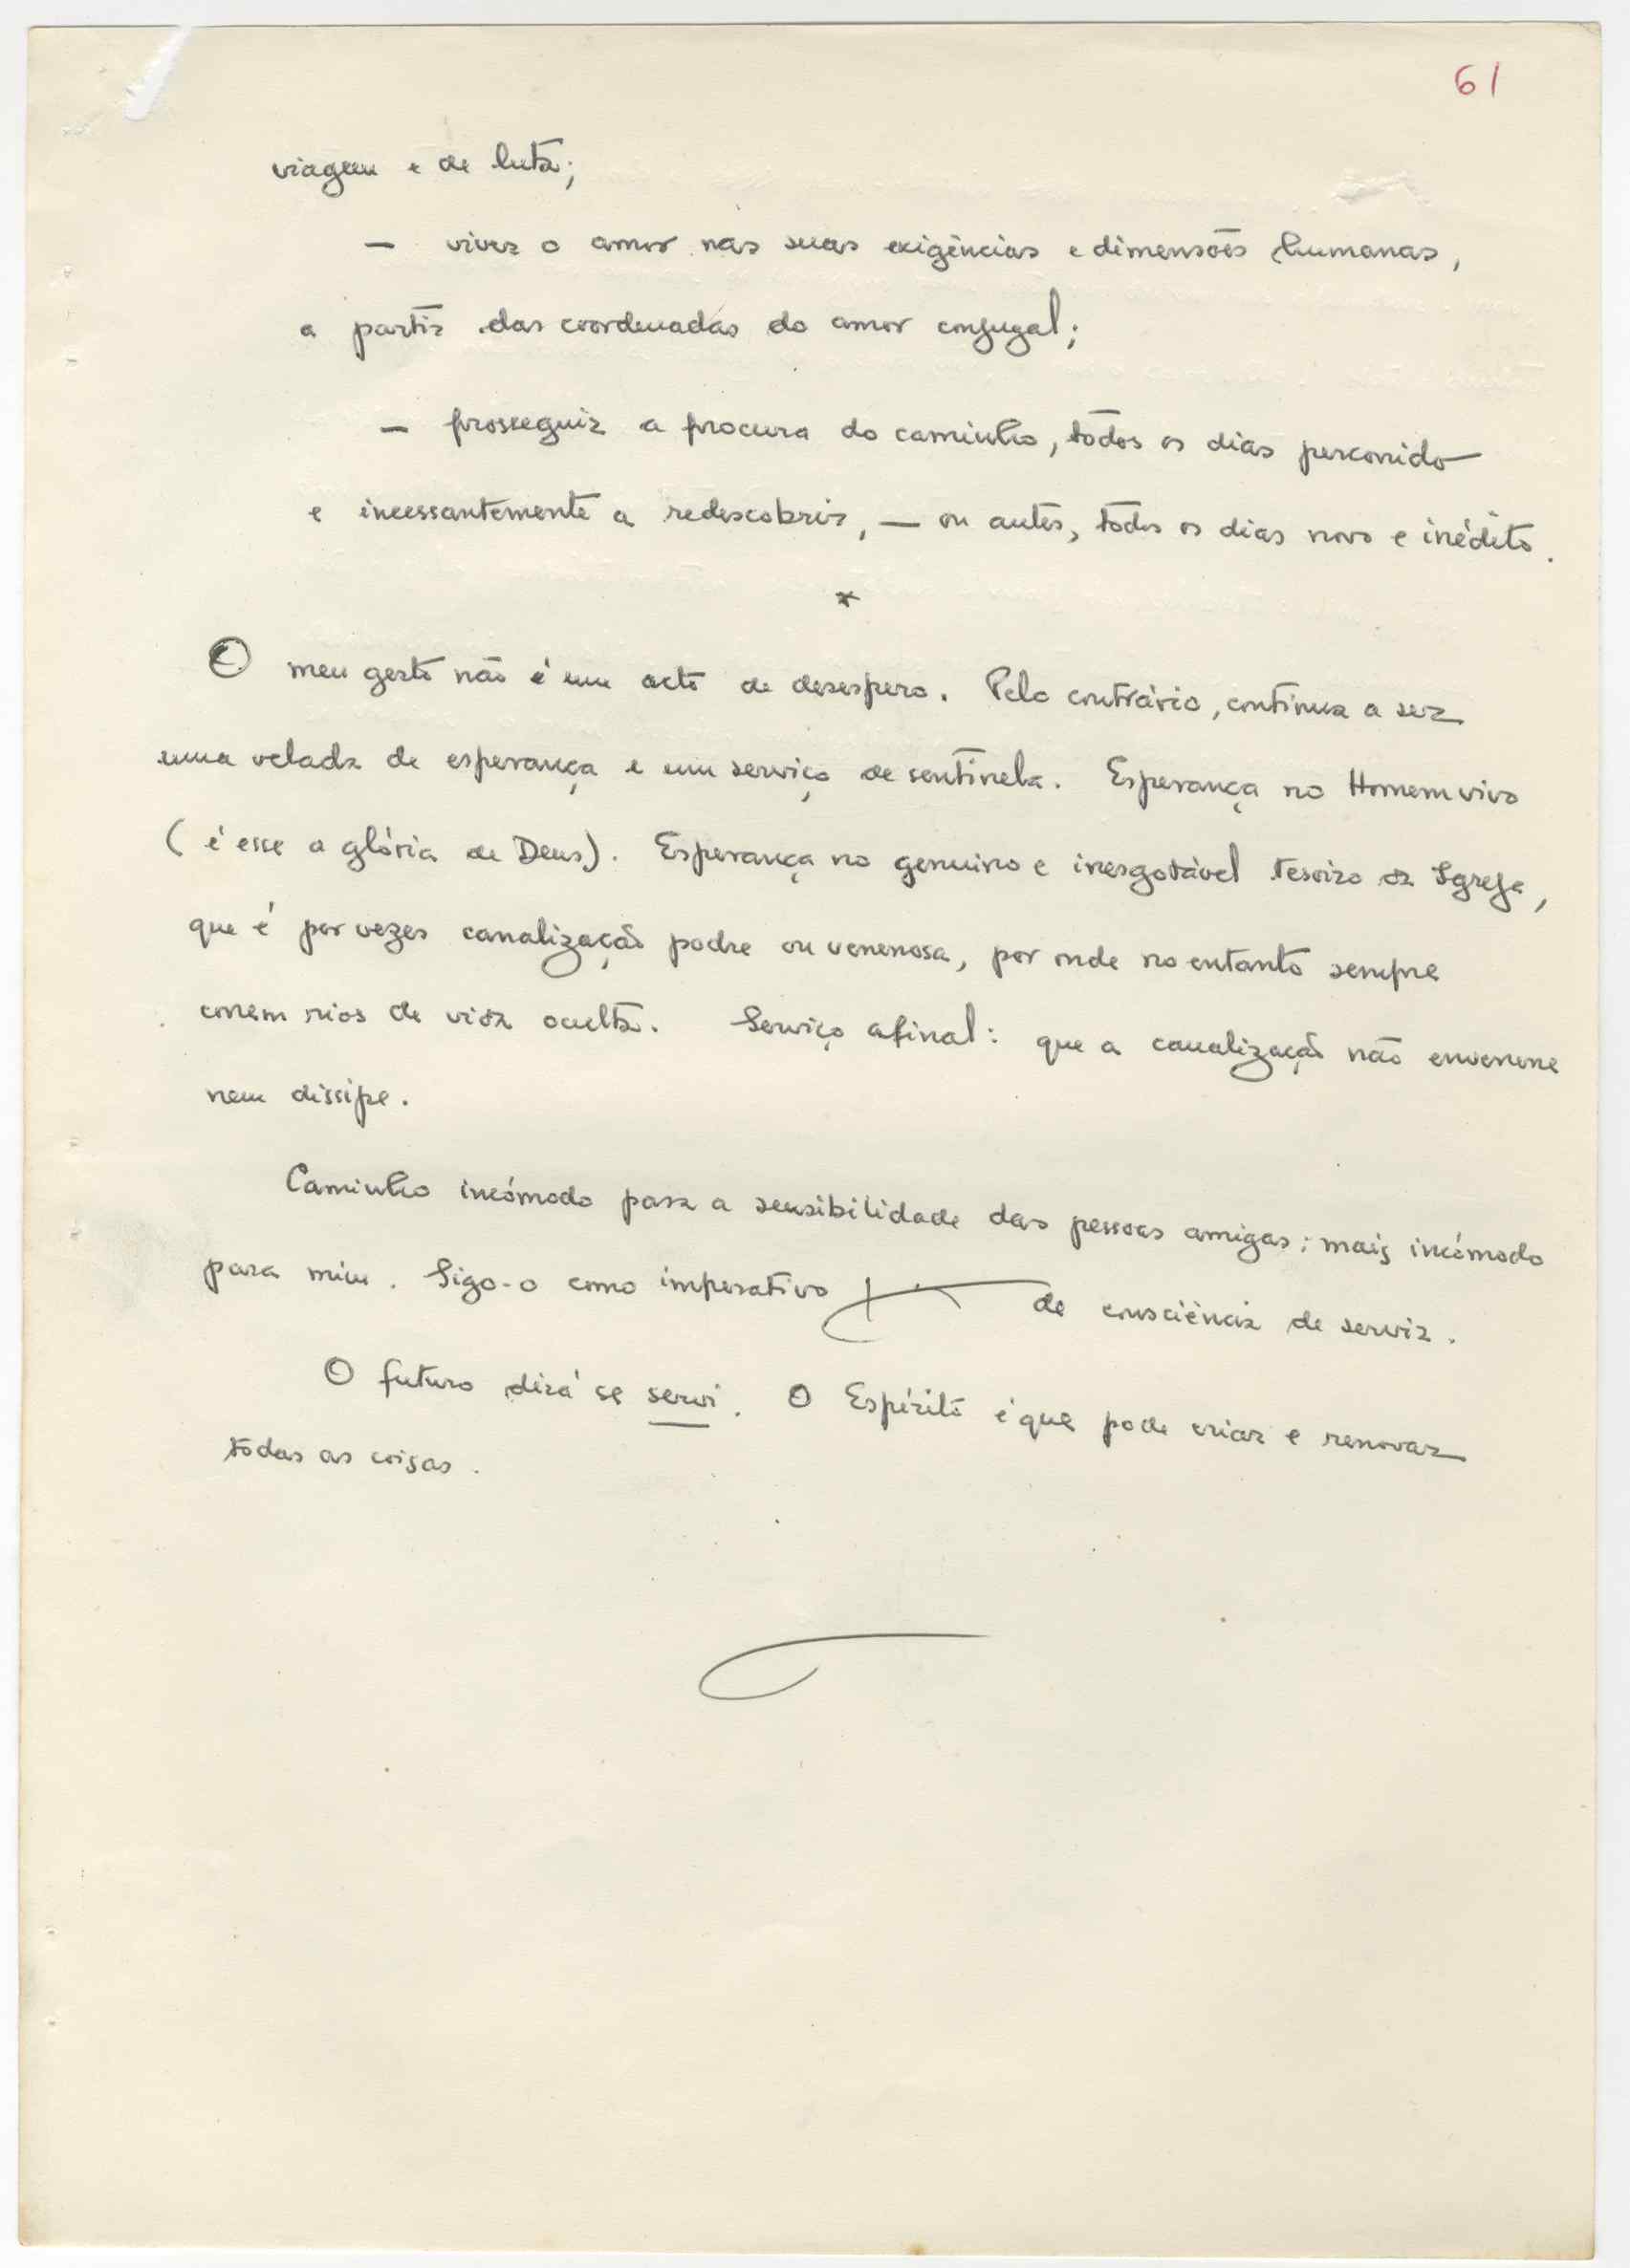 61
viagem e de luta;
— viver o amor nas suas exigências e dimensões humanas,
a partir das coordenadas do amor conjugal;
— prosseguir a procura do caminho, todos os dias percorrido
e incessantemente a redescobrir, — ou antes, todos os dias novo e inédito.
*
O meu gesto não é um acto de desespero. Pelo contrário, continua a ser
uma velada de esperança e um serviço de sentinela. Esperança no Homem vivo
(é esse a glória de Deus). Esperança no genuino e inesgotável tesoiro da Igreja,
que é por vezes canalização podre ou venenosa, por onde no entanto sempre
correm rios de vida oculta. Serviço afinal: que a canalização não envenene
nem dissipe.
Caminho incómodo para a sensibilidade das pessoas amigas; mais incómodo
para mim. Sigo-o como imperativo de consciência de servir.
O futuro dirá se servi. O Espírito é que pode criar e renovar
todas as coisas.